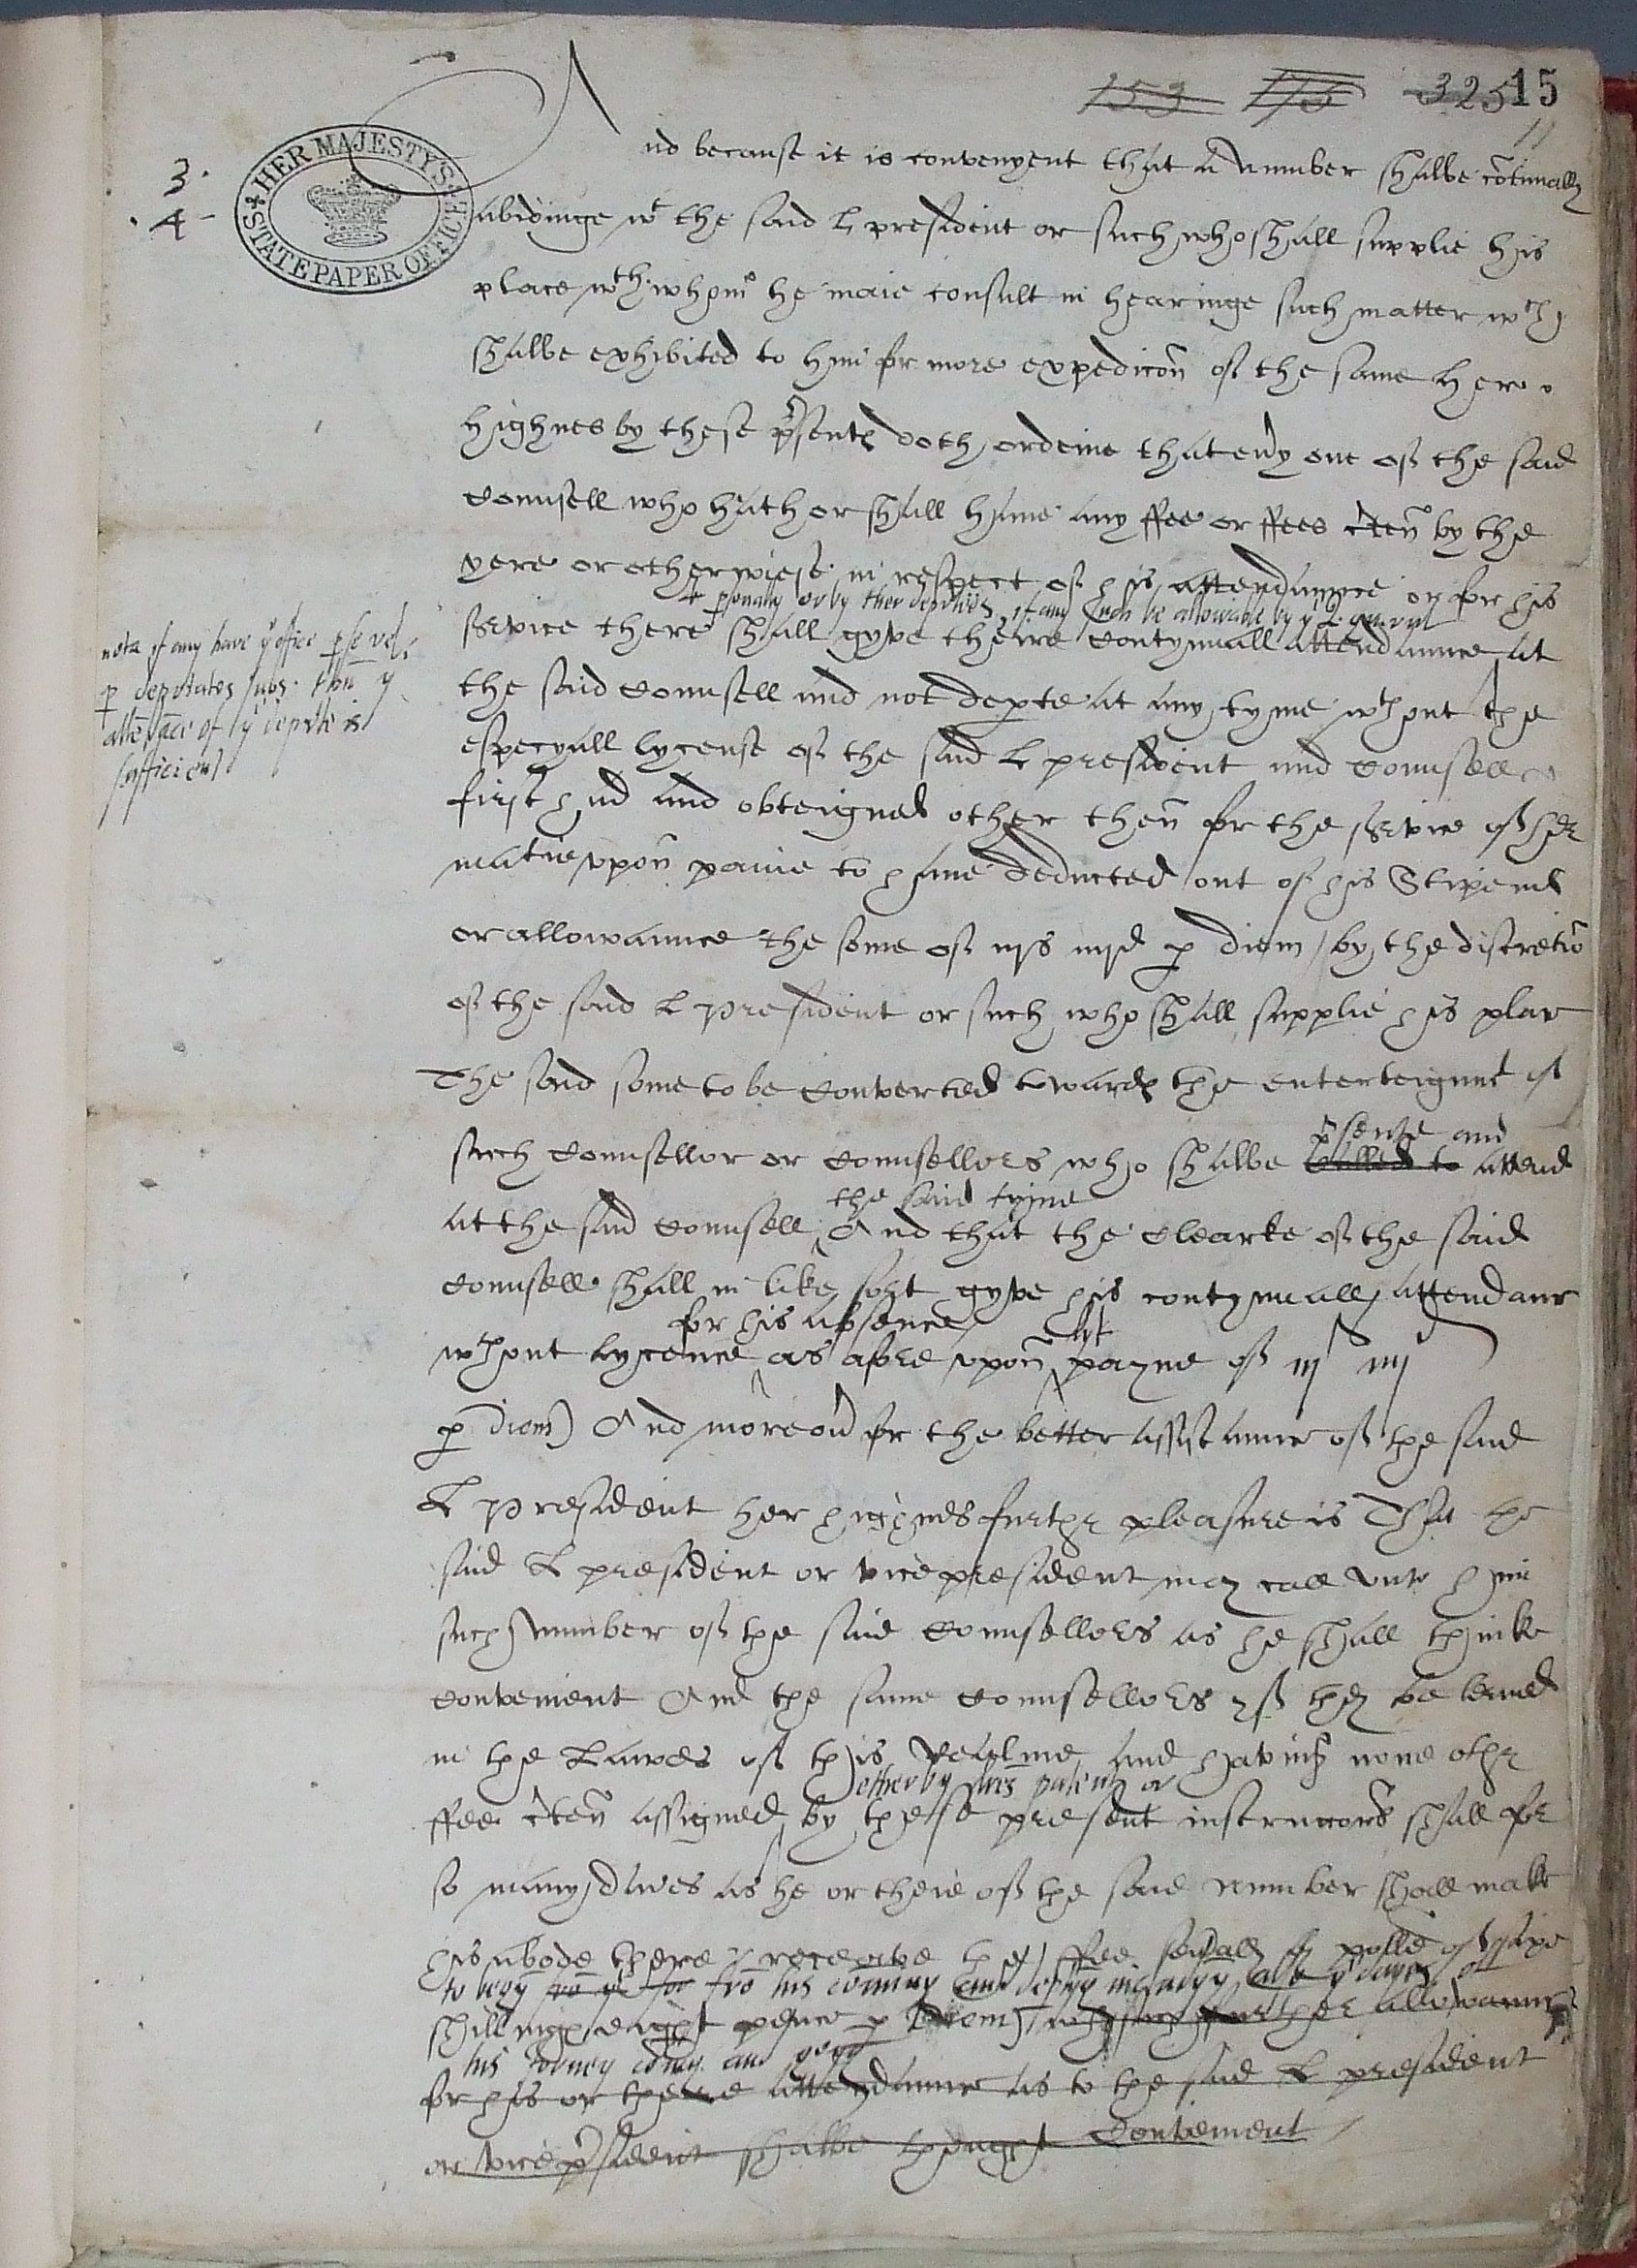 153 175 325 15
11
3.
4
HER MAJESTY'S STATE PAPER OFFICE
And because it is convenyent that a number shalbe cotinually
abidinge wt the said L president or such who shall supplie his
place wth whom he maie consult in hearinge such matter wch
shalbe exhibited to him for more expedicon of the same Her
highnes by these psents doth ordeine that euy one of the said
Counsell who hath or shall haue any ffee or ffees cten by the
yere or otherwiese in respect of his attendaunce or for his
psonally or by ther deputies if any such be allowable by ye Q graunt
service there shall gyve theire contynuall attendaunce at
nota if any have ye office p se vel
p deputates suos then ye
attendace of ye depute is
sufficient
the said Counsell and not depte at any tyme wthout the
especyall lycense of the said L president and Counsell
first had and obteigned other then for the service of her
matie vpon paine to haue deducted out of his Stipend
or allowaunce the some of vjs viijd p diem / by the discretio
of the said L President or such who shall supplie his place
The said some to be converted towards the enterteignmt of
psente and
such Counsellor or Counsellors who shalbe called to attend
the said tyme
at the said Counsell And that the Clearke of the said
Counsell shall in like sort gyve his contynuall attendance
for his absence lyk
wthout lycence as afore vpon payne of iijs iiijd
p diem) And moreou for the better assistaunce of the said
L President her highnes further pleasure is That the
said L president or vicepresident may call vnto him
such number of the said Counsellors as he shall thinke
Convenient And the same Counsellors yf they be lerned
in the Lawes of this Realme and having none other
ether by lres patents or
ffee cten assigned by these present instruccons shall for
so many daies as he or theie of the said number shall make
his abode there receave they ffee seually by polle of sixe
to begy fro ye for fro his coming and defray
shillings eight pence p diem) wth further allowaunce
his Jorney comyg and goyg
for his or theire attendaunce as to the said L president
or vicepsident shalbe thought Convenient